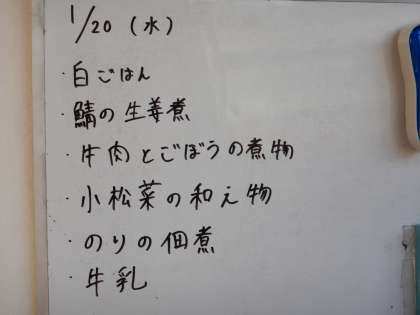 1/20 (水)
・白ごはん
・鯖の生姜煮
・牛肉とごぼうの煮物
・小松菜の和え物
・のりの佃煮
・牛乳